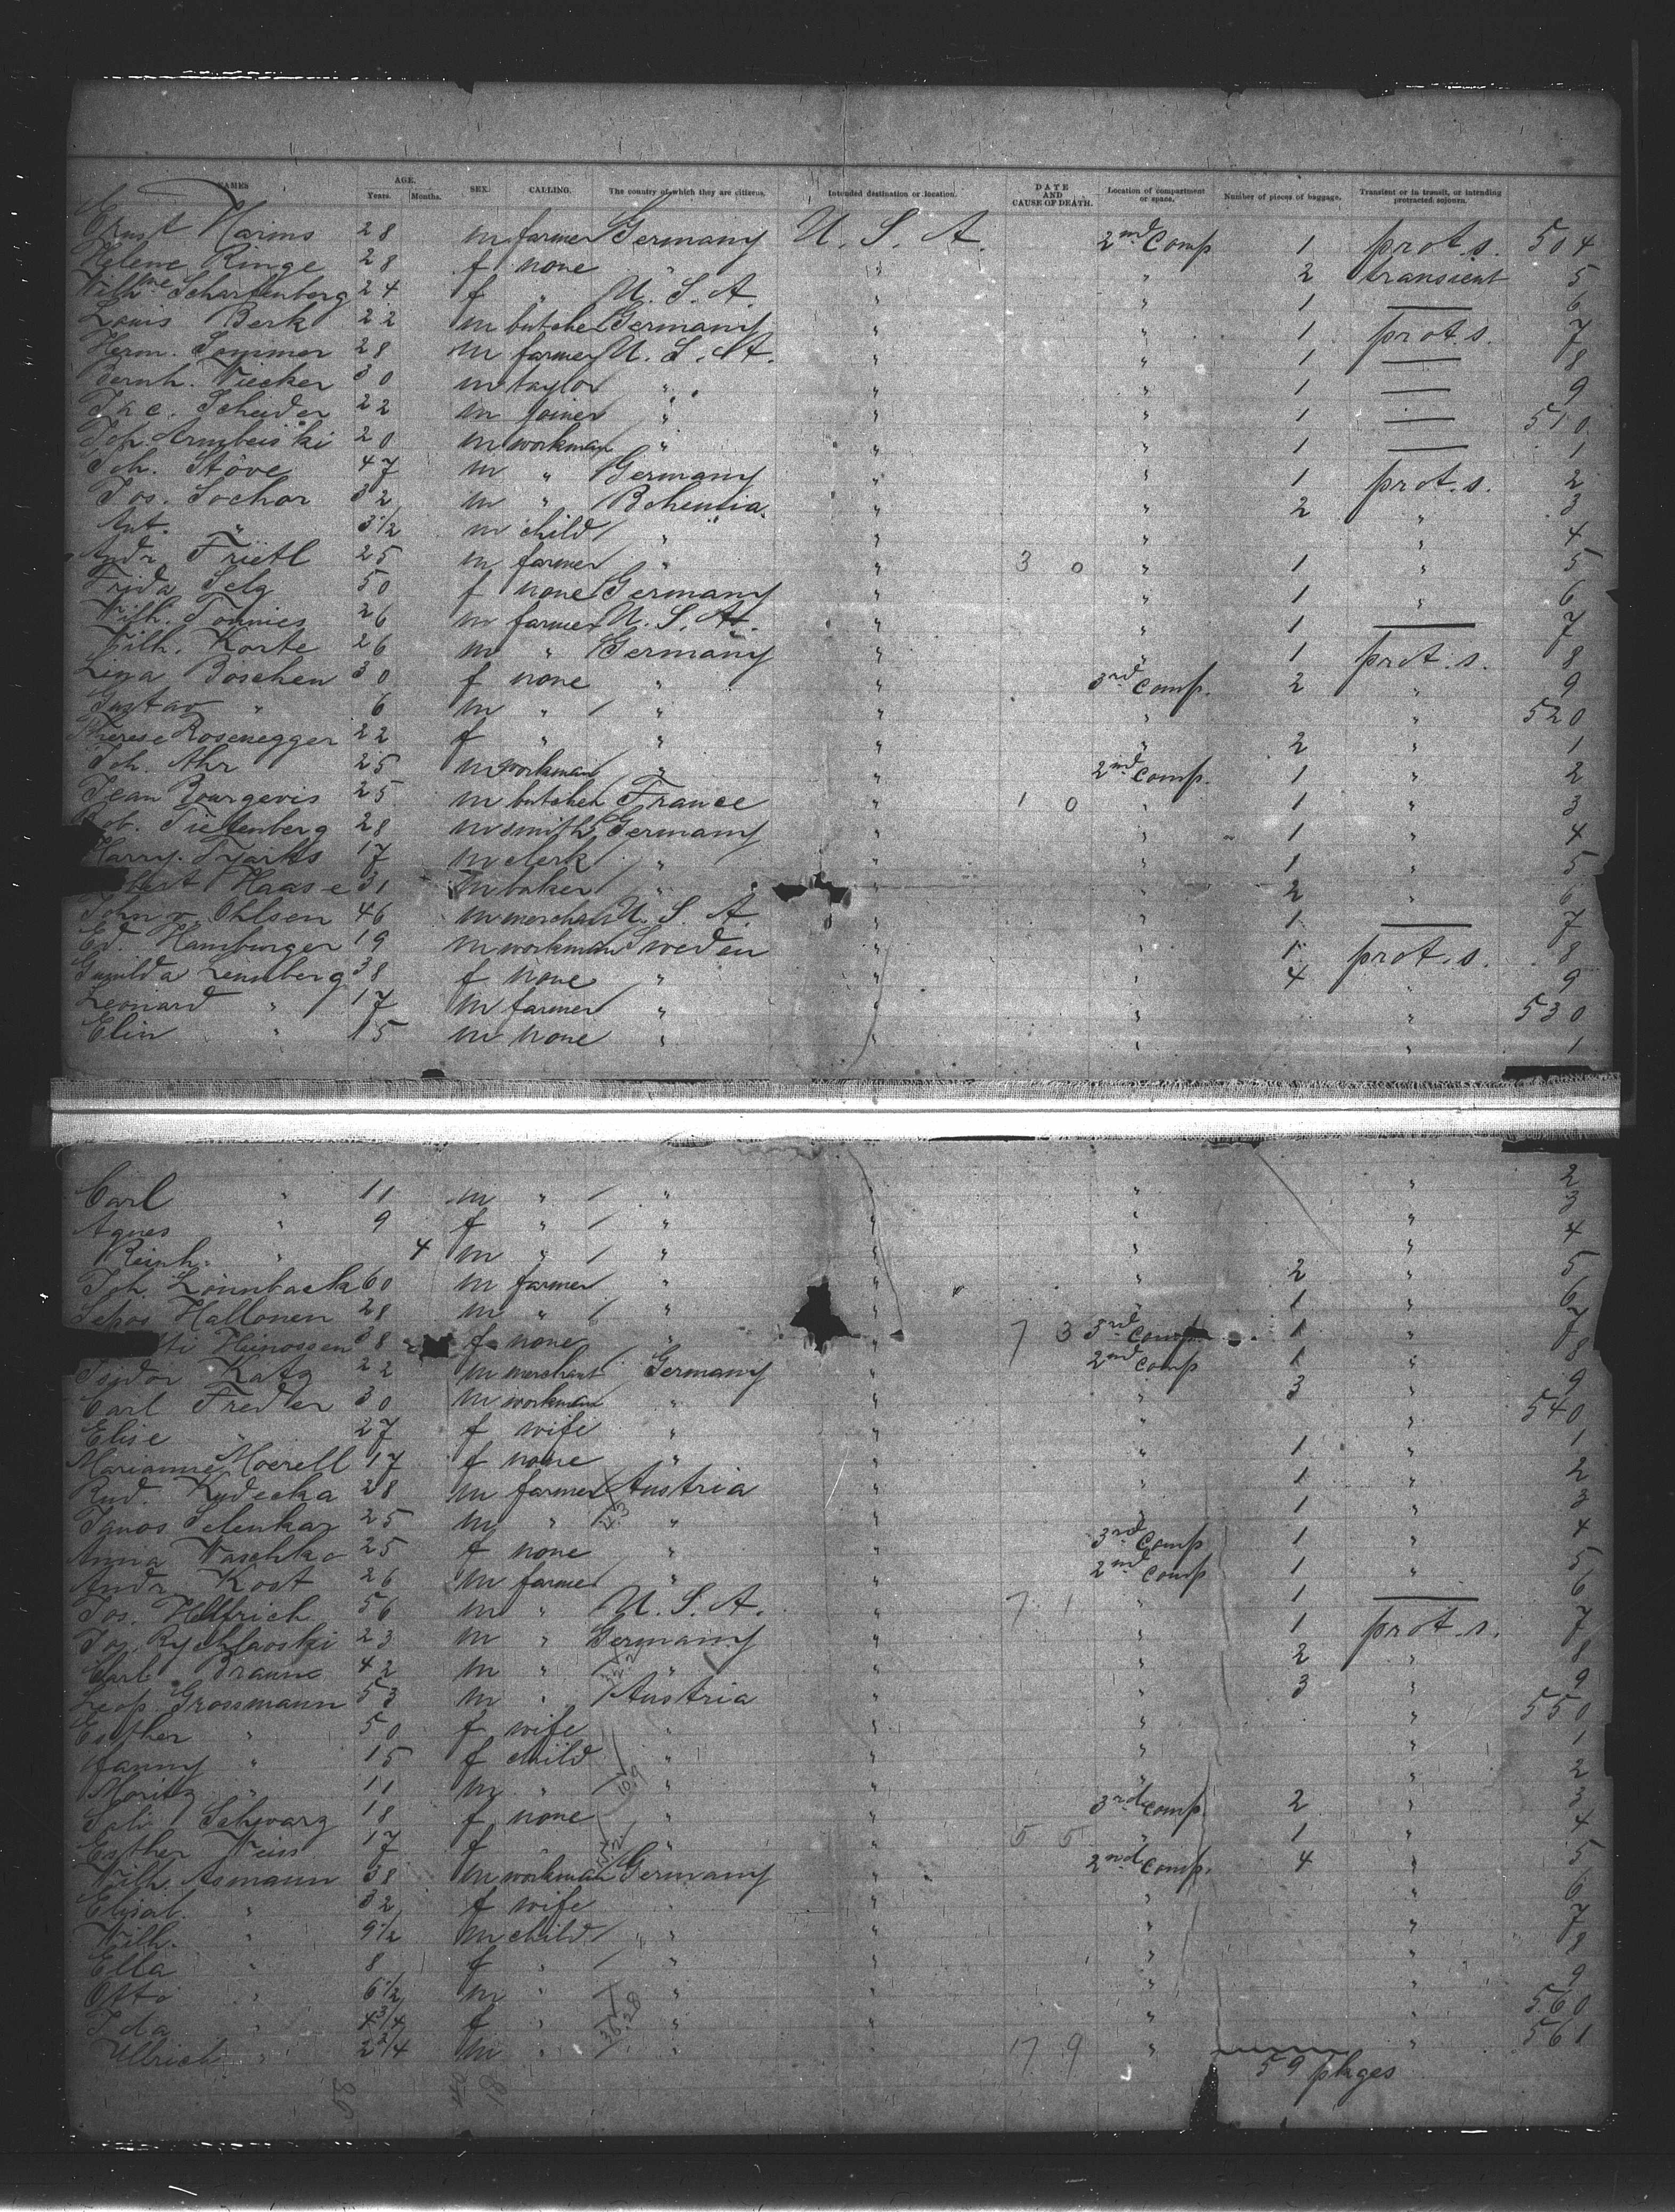 NAMES AGE. Years. Months. SEX. CALLING. The country of which they are citizens. Intended destination or location. DATE AND CAUSE OF DEATH. Location of compartment or space. Number of pieces of baggage. Transient or in transit, or intending protracted sojourn.
Ernst Harms 28 m farmer Germany U. S. A. 2nd Comp 1 prot. s. 504
Helene Ringe 28 f none " " " 2 transient 5
Wilhne Scharfenberg 24 f " U. S. A. " " 1 — 6
Louis Berk 22 m butcher Germany " " 1 prot. s. 7
Herm. Sommer 28 m farmer U. S. A. " " 1 — 8
Bernh. Viecker 30 m taylor " " " 1 — 9
Jac. Scheider 22 m joiner " " " 1 — 510
Joh. 20 m workman " " " 1 — 1
Joh. Stöve 47 m " Germany " " 1 prot. s. 2
Jos. Sochor 32 m " Bohemia " " 2 " 3
Ant. " 3 1/2 m child / " " " " 4
Andr. Frietl 25 m farmer " " 3 0 " 1 " 5
Frida Selg 50 f none Germany " " 1 " 6
Wilh. Tonnies 26 m farmer U. S. A. " " 1 — 7
Wilh. Korte 26 m " Germany " " 1 prot. s. 8
Lina Böschen 30 f none " " 3rd Comp. 2 " 9
Gustav " 6 m " / " " " " 520
Therese Rosenegger 22 f " " " " 2 " 1
Joh. Ahr 25 m workman " " 2nd Comp. 1 " 2
Jean Bourgevis 25 m butcher France " 1 0 " 1 " 3
Rob. Tiefenberg 28 m smith Germany " " 1 " 4
Harry Tjarks 17 m clerk " " " 1 " 5
Haase 31 m baker " " " 2 " 6
John v. Ohlsen 46 m merchant U. S. A. " " 1 — 7
Ed. Hamburger 19 m workman Sweden " " 1 prot. s. 8
Gunilda Lennberg 38 f none " " " 4 " 9
Leonard " 17 m farmer " " " " 530
Elin " 15 m none " " " " 1
Carl " 11 m " / " " " " 2
Agnes " 9 f " / " " " " 3
Reinh. " 4 m " / " " " " 4
Joh. Lönnback 60 m farmer " " " 2 " 5
Hallonen 28 m " / " " " 1 " 6
Heinossen 38 f none " " 7 3 3rd Comp. 1 " 7
Isidor Katz 22 m merchant Germany " 2nd Comp 1 " 8
Carl Fredler 30 m workman " " " 3 " 9
Elise " 27 f wife " " " " 540
Marianne Moerell 17 f none " " " 1 " 1
Rud. Kudecka 28 m farmer Austria " " 1 " 2
Selenkar 25 m " " " " 1 " 3
Anna Waschko 25 f none " " 3rd Comp 1 " 4
Andr. Kost 26 m farmer " " 2nd Comp 1 " 5
Jos. Helfrich 56 m " U. S. A. " 7 1 " 1 — 6
Jos. Rychlaoski 23 m " Germany " " 1 prot. s. 7
Carl Braune 42 m " " " " 2 " 8
Leop. Grossmann 53 m " Austria " " 3 " 9
Esther " 50 f wife " " " " 550
Fanny " 15 f child " " " " 1
Moritz " 11 m " / " " " " 2
Schwarz 18 f none " " 3rd Comp. 2 " 3
Esther Weiss 17 f " " " 5 5 " 1 " 4
Wilh. Asmann 38 m workman Germany " 2nd Comp. 4 " 5
Elisab. " 32 f wife " " " " 6
Wilh. " 9 1/2 m child / " " " " 7
Ella " 8 f " / " " " " 8
Otto " 6 1/2 m " / " " " " 9
Ida " 4 3/4 f " / " " " " 560
Ullrich " 2 3/4 m " / " " 17 9 " " 561
59 plages